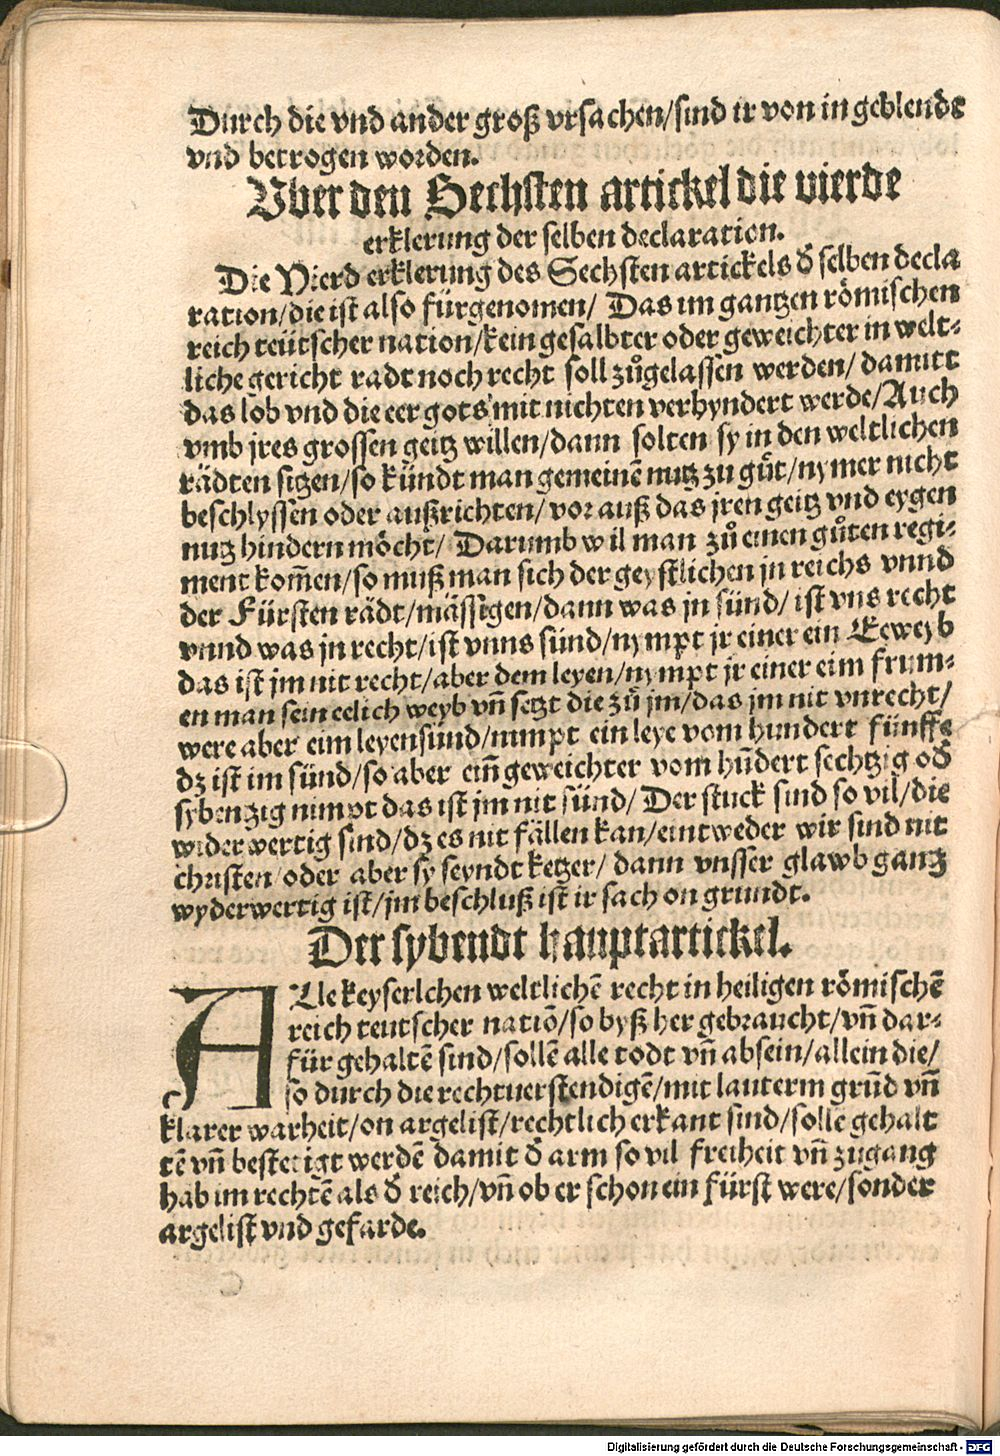 Durch die vnd ander groß vrsachen/sind ir von in geblendt
vnd betrogen worden.
Vber den Sechsten artickel die vierde
erklerung der selben declaration.
Die Vierd erklerung des Sechsten artickels d̄ selben decla
ration/die ist also fürgenomen/ Das im gantzen römischen
reich teütscher nation/kein gesalbter oder geweichter in welt⸗
liche gericht radt noch recht soll zůgelassen werden/ damitt
das lob vnd die eer gots mit nichten verhyndert werde/Auch
vmb jres grossen geitz willen/dann solten sy in den weltlichen
rädten sitzen/so kündt man gemeinē nutz zu gůt/nymer nicht
beschlyssen oder außrichten/vor auß das jren geitz vnd eygen
nutz hindern möcht/ Darumb wil man zů einen gůten regi⸗
ment kom̄en/so muß man sich der geystlichen jn reichs vnnd
der Fürsten rädt/mässigen/dann was jn sünd/ ist vns recht
vnnd was jn recht/ist vnns sünd/nympt jr einer ein Eeweyb
das ist jm nit recht/aber dem leyen/nympt jr einer eim frum⸗
en man sein eelich weyb vn̄ setzt die zů jm/das jm nit vnrecht/
were aber eim leyen sünd/nimpt ein leye vom hundert fünffe
dz ist im sünd/so aber ein̄ geweichter vom hūdert sechtzig od̄
sybenzig nimpt das ist jm nit sünd/ Der stuck sind so vil/die
widerwertig sind/dz es nit fällen kan/eintweder wir sind nit
christen/oder aber sy seyndt ketzer/ dann vnsser glawb gantz
wyderwertig ist/jm beschluß ist ir sach on grundt.
Der sybendt hauptartickel.
Alle keyserlchen weltlichē recht in heiligen römischē
reich teutscher natiō/so byß her gebraucht/vn̄ dar⸗
für gehaltē sind/sollē alle todt vn̄ absein/allein die/
so durch die rechtuerstendigē/mit lauterm grūd vn̄
klarer warheit/on argelist/rechtlich erkant sind/solle gehalt
tē vn̄ bestetigt werdē damit d̄ arm so vil freiheit vn̄ zugang
hab im rechtē als d̄ reich/vn̄ ob er schon ein fürst were/sonder
argelist vnd gefarde.
Digitalisierung gefördert durch die Deutsche Forschungsgemeinschaft - DFG